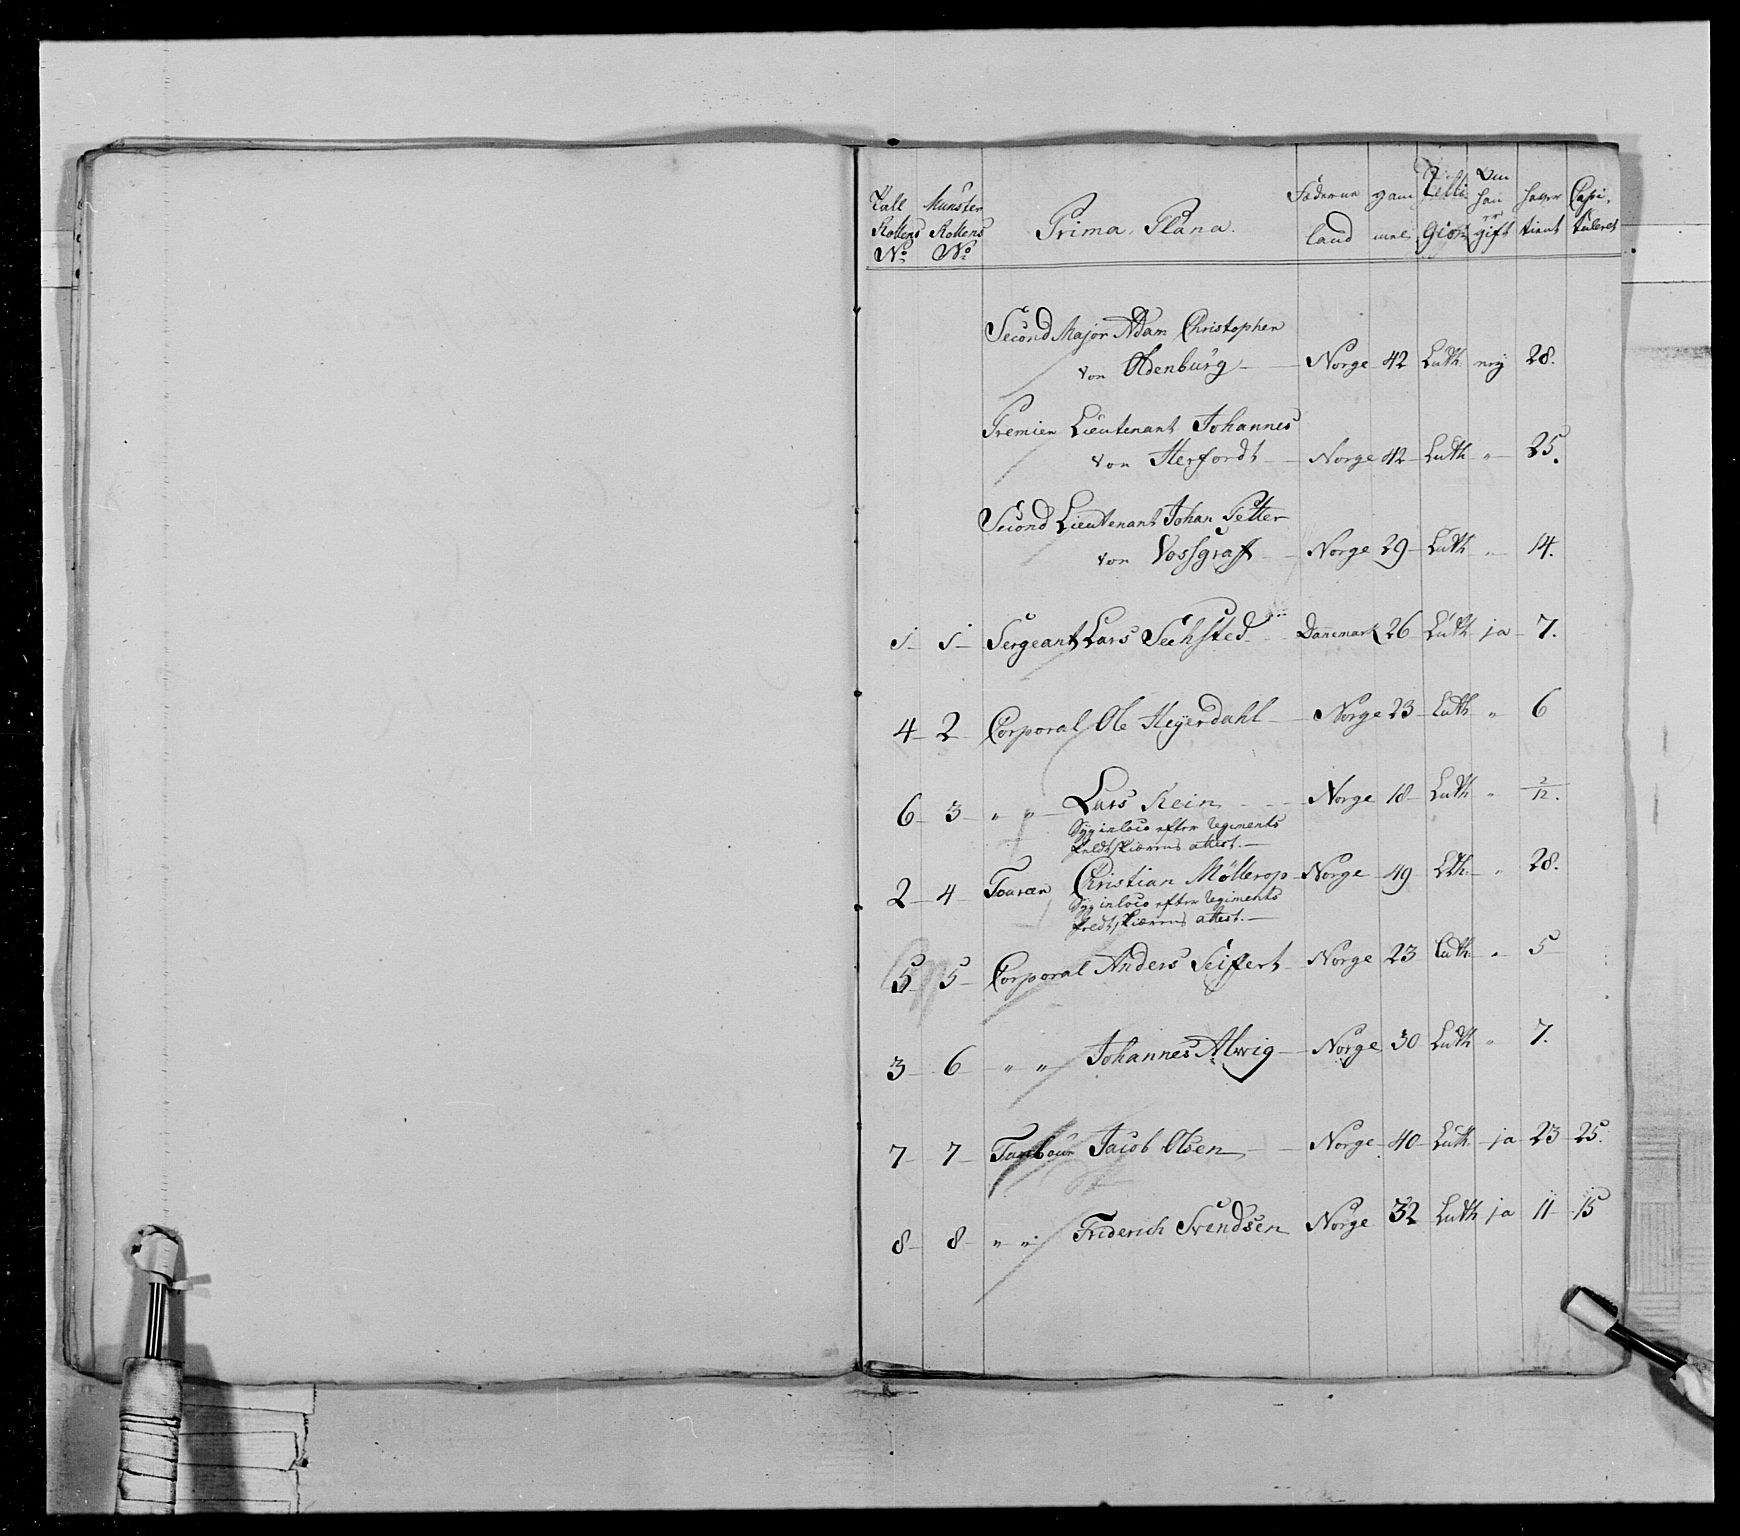 Tall Rollens No | Munster Rollens No | Prima Plana. | Föderne land | gam mel | Reli Gion | Om han er gift | haver tient | Capi, tuleret
Second Major Adam Christopher
von Oldenburg — Norge 42 Luth: ney 28.
Premier Lieutenant Johannes
von Herfordt — Norge 42 Luth „ 25.
Second Lieutenant Johan Petter
von Vossgraff — Norge 29 Luth „ 14.
1 1 Sergeant Lars Sechsted — Danemark 26 Luth ja 7.
4 2 Corporal Ole Heyerdahl — Norge 23 Luth „ 6
6 3 „ „ Lars Rein — Norge 18 Luth „ 2/12.
Syg in loco efter Regiments
feldtskiærens attest. —
2 4 Fourier Christian Møllerop Norge 49 Lth. „ 28.
Syg in loco efter Regiments
feldtskiærens attest. —
5 5 Corporal Anders Seifert Norge 23 Luth. „ 5
3 6 „ „ Johannes Alwig — Norge 30 Luth „ 7.
7 7 Tambour Jacob Olsen — Norge 40 Luth. ja 23 25.
8 8 „ „ Friderich Svendsen Norge 32 Luth ja 11 15